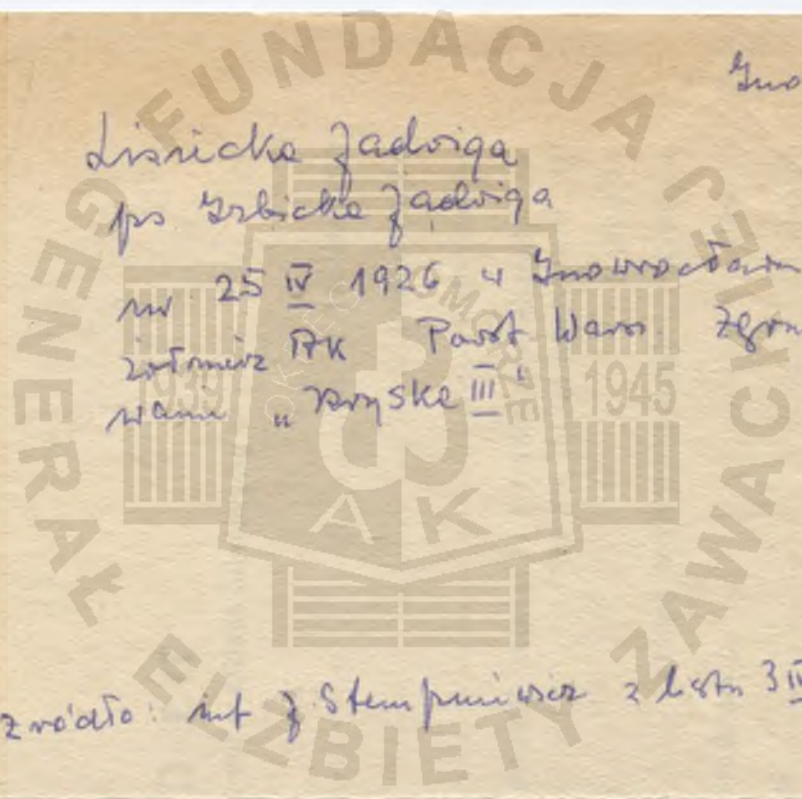 Ino
Lisicka Jadwiga
ps Izbicka Jadwiga
ur 25 IV 1926 w Inowrocław
żołnierz AK Powst Warsz. Zgru
"Bryska III"
źródło: inf J. Stempniewicz z listu 3 IV
FUNDACJA GENERAŁ ELŻBIETY ZAWACKIEJ
POMORZE
1939 1945
AK